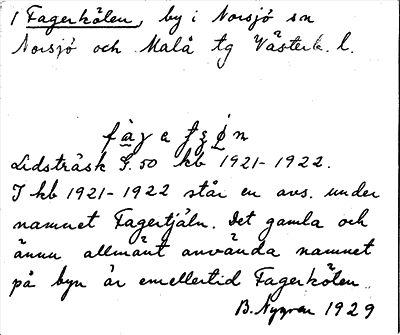 1 Fagerkölen, by i Norsjö sn
Norsjö och Malå tg Västerb. l.
Lidsträsk S. 50 kb 1921-1922.
I kb 1921-1922 står en avs. under
namnet Fagertjäln. Det gamla och
ännu allmänt använda namnet
på byn är emellertid Fagerkölen.
B. Nygren 1929